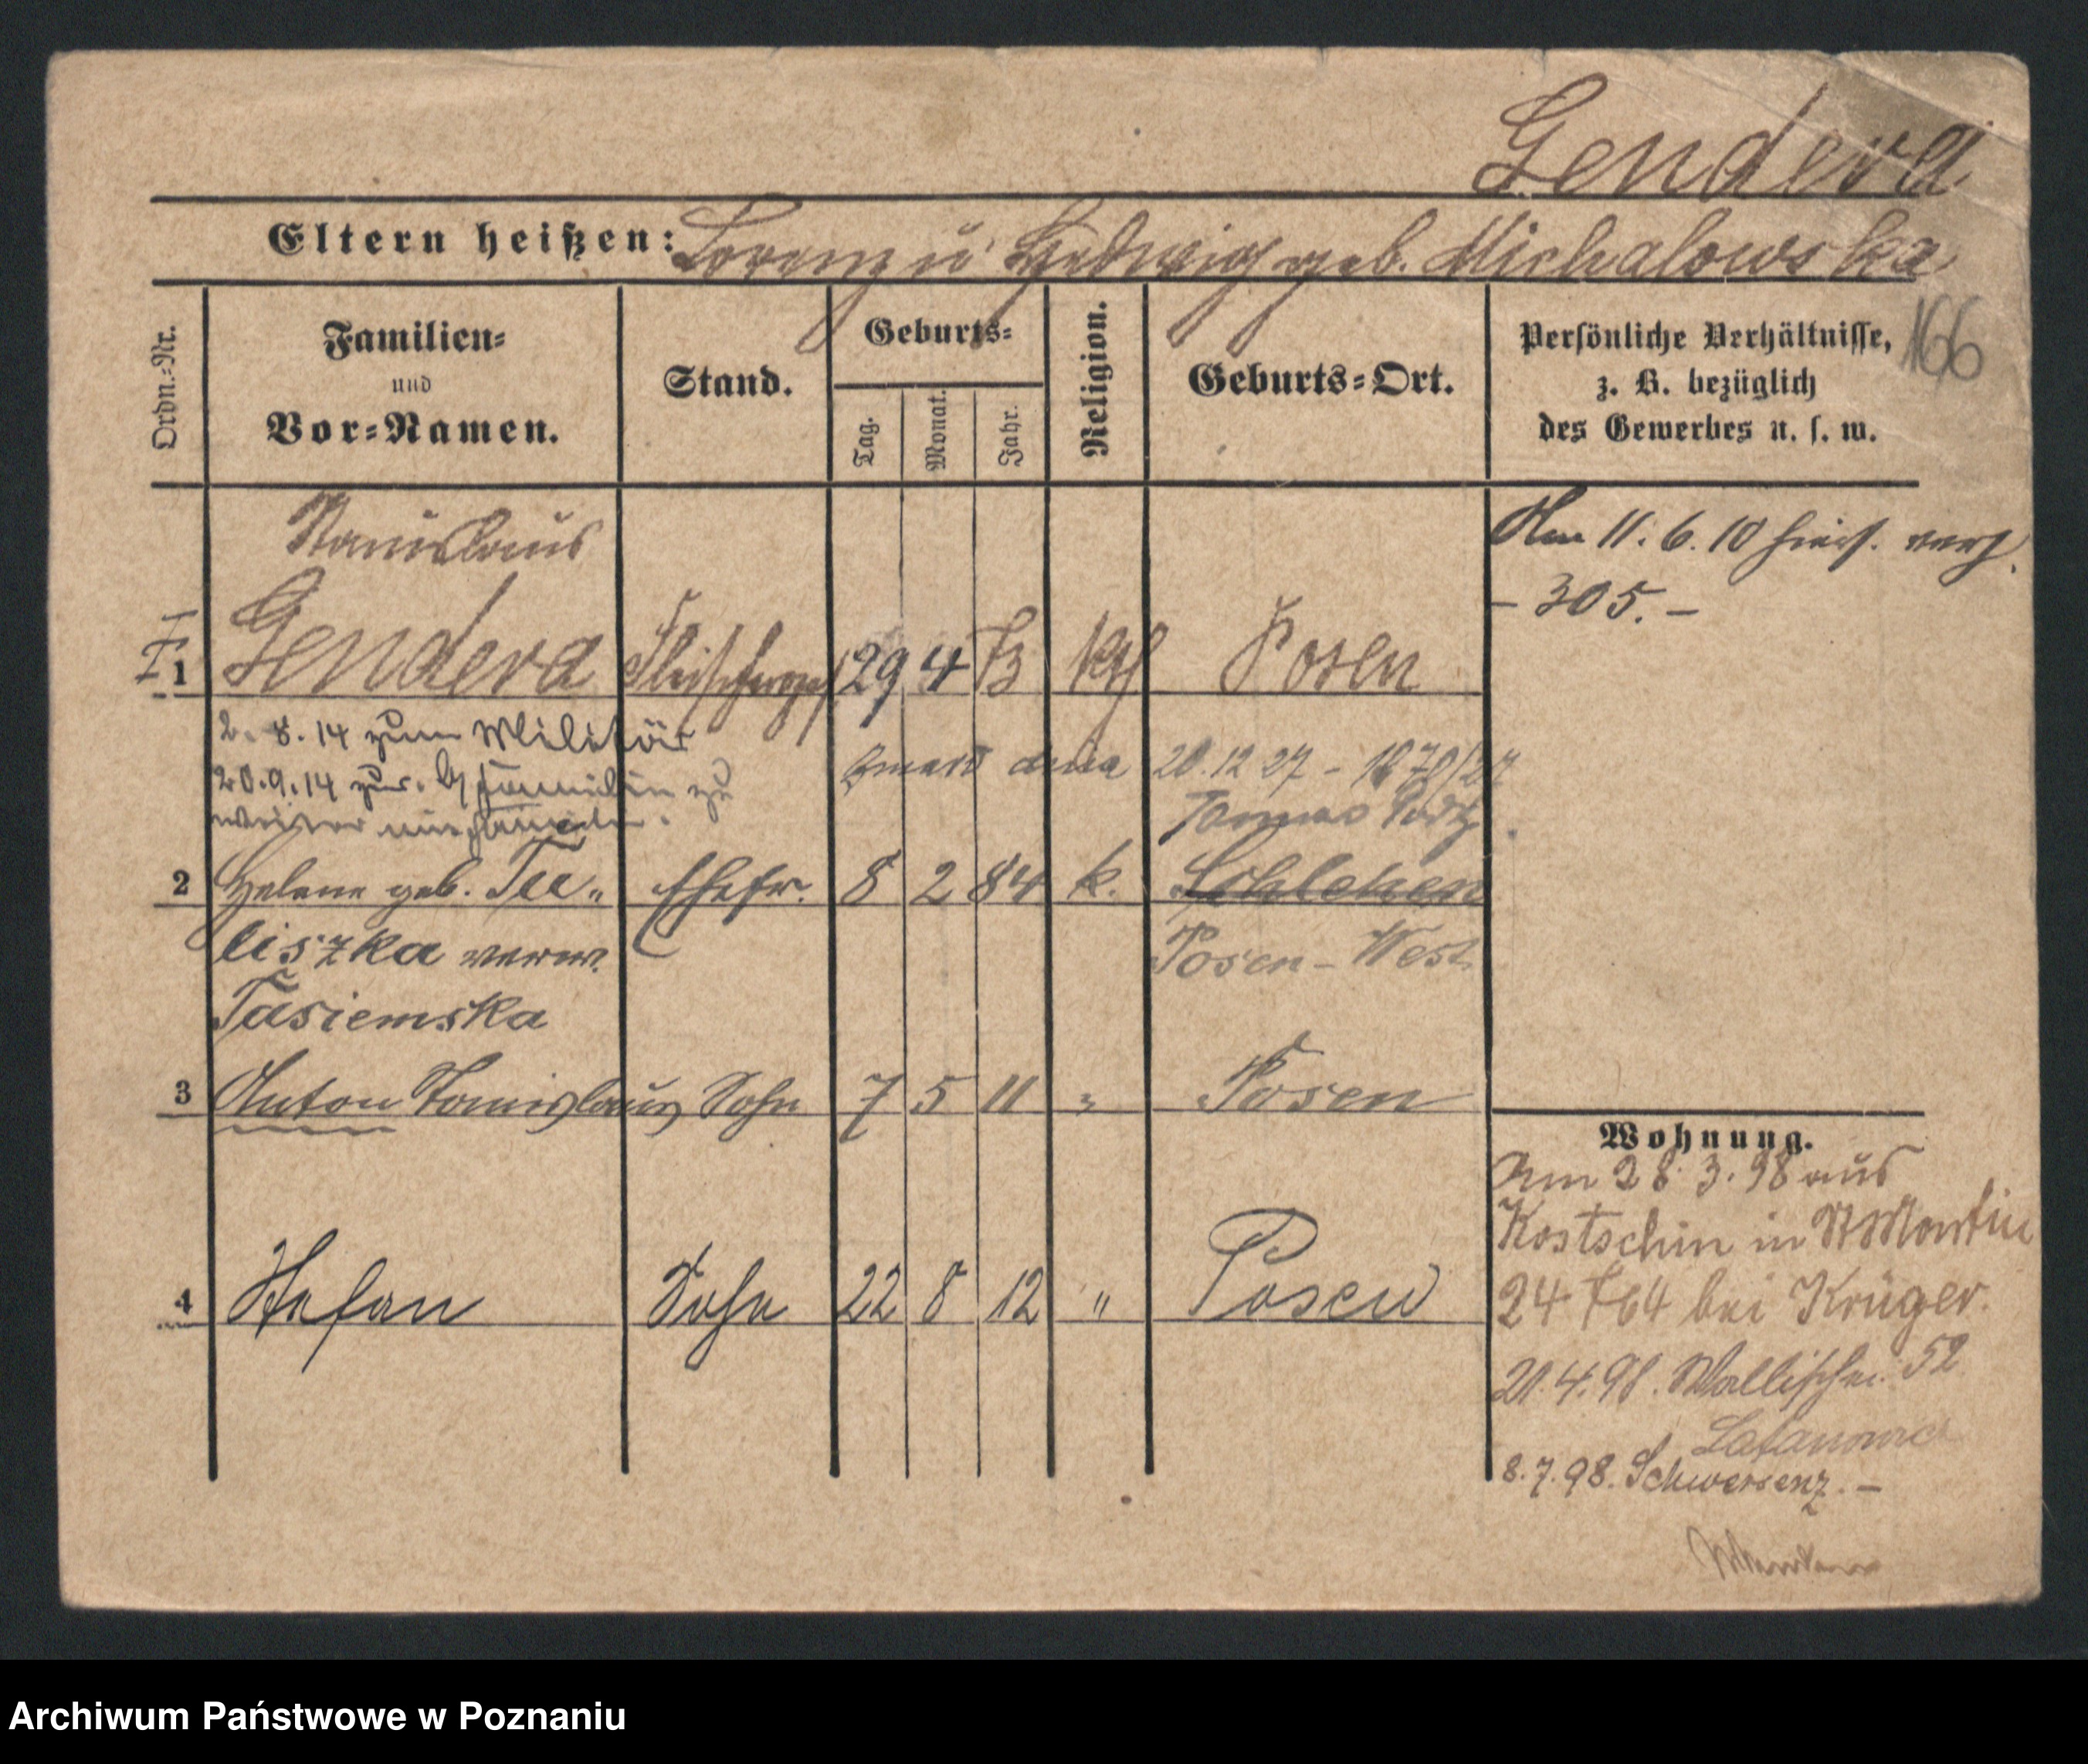 Gendera
Eltern heißen: Lorenz u Hedwig geb. Michalowska
166
Ordn.-Nr.
Familien-
und
Vor-Namen.
Stand.
Geburts-
Tag.
Monat.
Jahr.
Religion.
Geburts-Ort.
Persönliche Verhältnisse,
z. B. bezüglich
des Gewerbes u. s. w.
Am 11. 6. 10 verh.
– 305. –
Stanislaus
1 Gendera 29 4 73 kth Posen
2. 8. 14 zum Militär
20. 9. 14 zur
zmarł dnia 20.12 27 –
2 Helene geb. Ta„ Ehefr. 8 2 84 k. Schlehen
liszka verw. Posen-West
Tasiemska
3 Anton Stanislaus Sohn 7 5 11 „ Posen
4 Stefan Sohn 22 8 12 „ Posen
Wohnung.
Am 28. 3. 98 aus
Kostschin in St Martin
24 bei Krüger.
21. 4. 98. Wallischei 52
8. 7. 98. Schwersenz. –
Archiwum Państwowe w Poznaniu